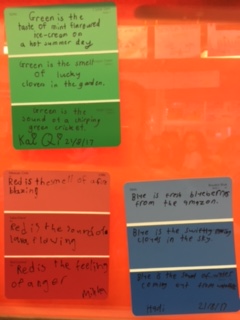 Green is the
taste of mint flavoured
ice-cream on
a hot summer day
Green is the smell
of lucky
clovers in the garden.
Green is the
sound of a chirping
green cricket.
Red is the smell of a fire
blazing
Red is the sound of a
lava flowing
Red is the feeling
of anger
Blue is fresh blueberries
from the amazon.
Blue is the
clouds in the sky.
Blue is the sound of
coming out
Hadi 21/8/17